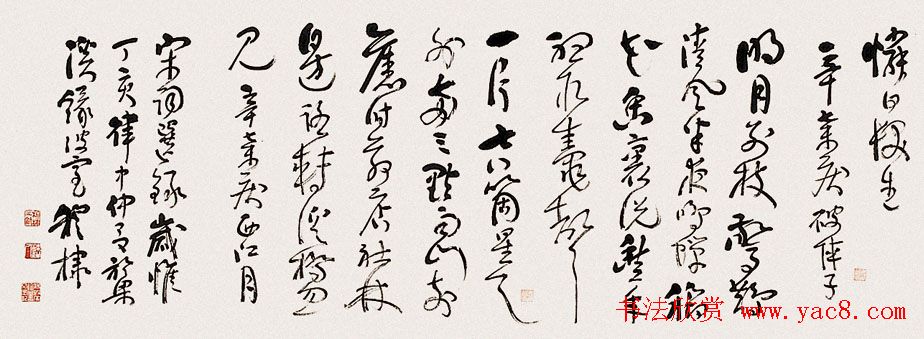 憐白髮生
辛棄疾破陣子
明月別枝驚鵲
清風半夜鳴蟬稻
花香裏說豐年
聽取蛙聲
一片七八箇星天
外兩三點雨山前
舊時茅店社林
邊路轉溪橋忽
見 辛棄疾西江月
宋詞選錄歲惟
丁亥律中仲夏於
书法欣赏 www.yac8.com